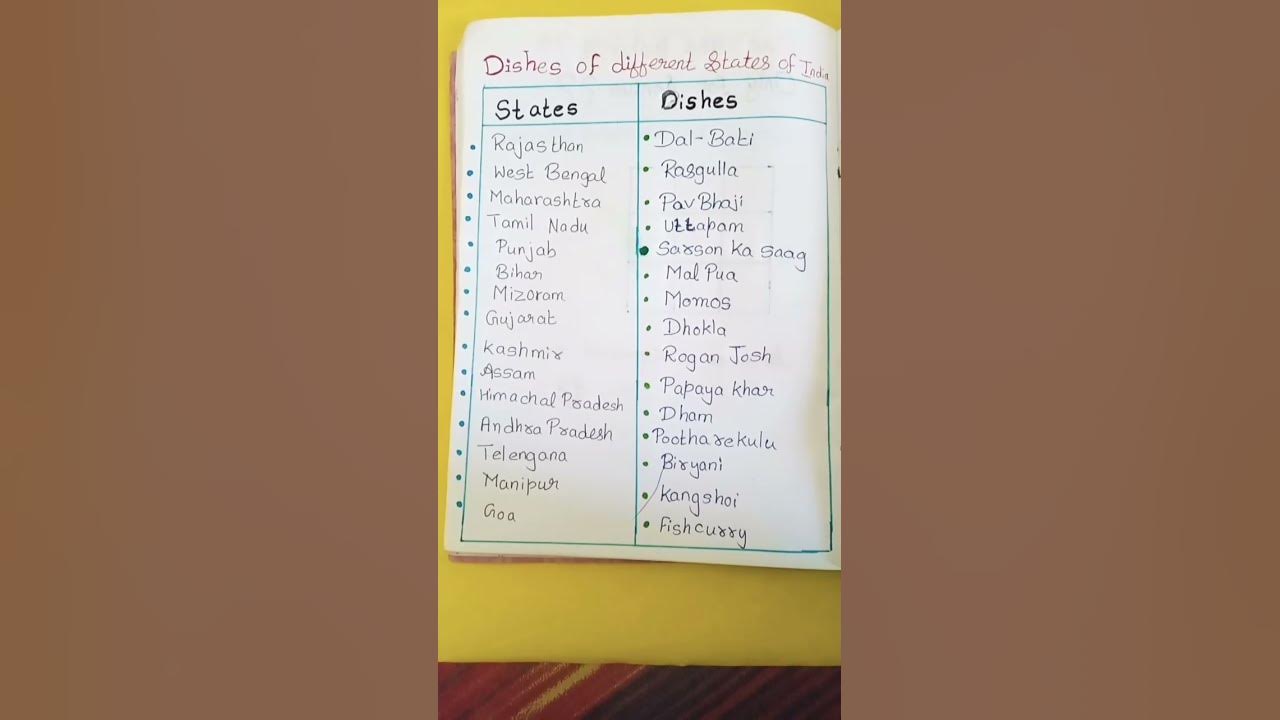 Dishes of different States of India
States Dishes
Rajasthan Dal-Bati
West Bengal Rasgulla
Maharashtra Pav Bhaji
Tamil Nadu Uttapam
Punjab Sarson Ka Saag
Bihar Mal Pua
Mizoram Momos
Gujarat Dhokla
Kashmir Rogan Josh
Assam Papaya khar
Himachal Pradesh Dham
Andhra Pradesh Pootharekulu
Telengana Biryani
Manipur Kangshoi
Goa Fish curry